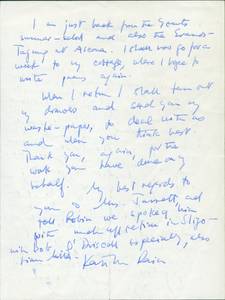 I am just back from the Yeats
summer-school and also the Eranos-
Tagung at Ascona. I shall now go for a
week to my cottage, where I hope to
write poems again.
When I return I shall turn out
my drawers and send you my
waste-paper, to deal with as
and when you think best.
Thank you, again, for the
work you have done on my
behalf. My best regards to
you & Mrs.
told Robin we spoke of him
with much affection in Sligo -
with Bob O'Driscoll especially, also
Kathleen Raine